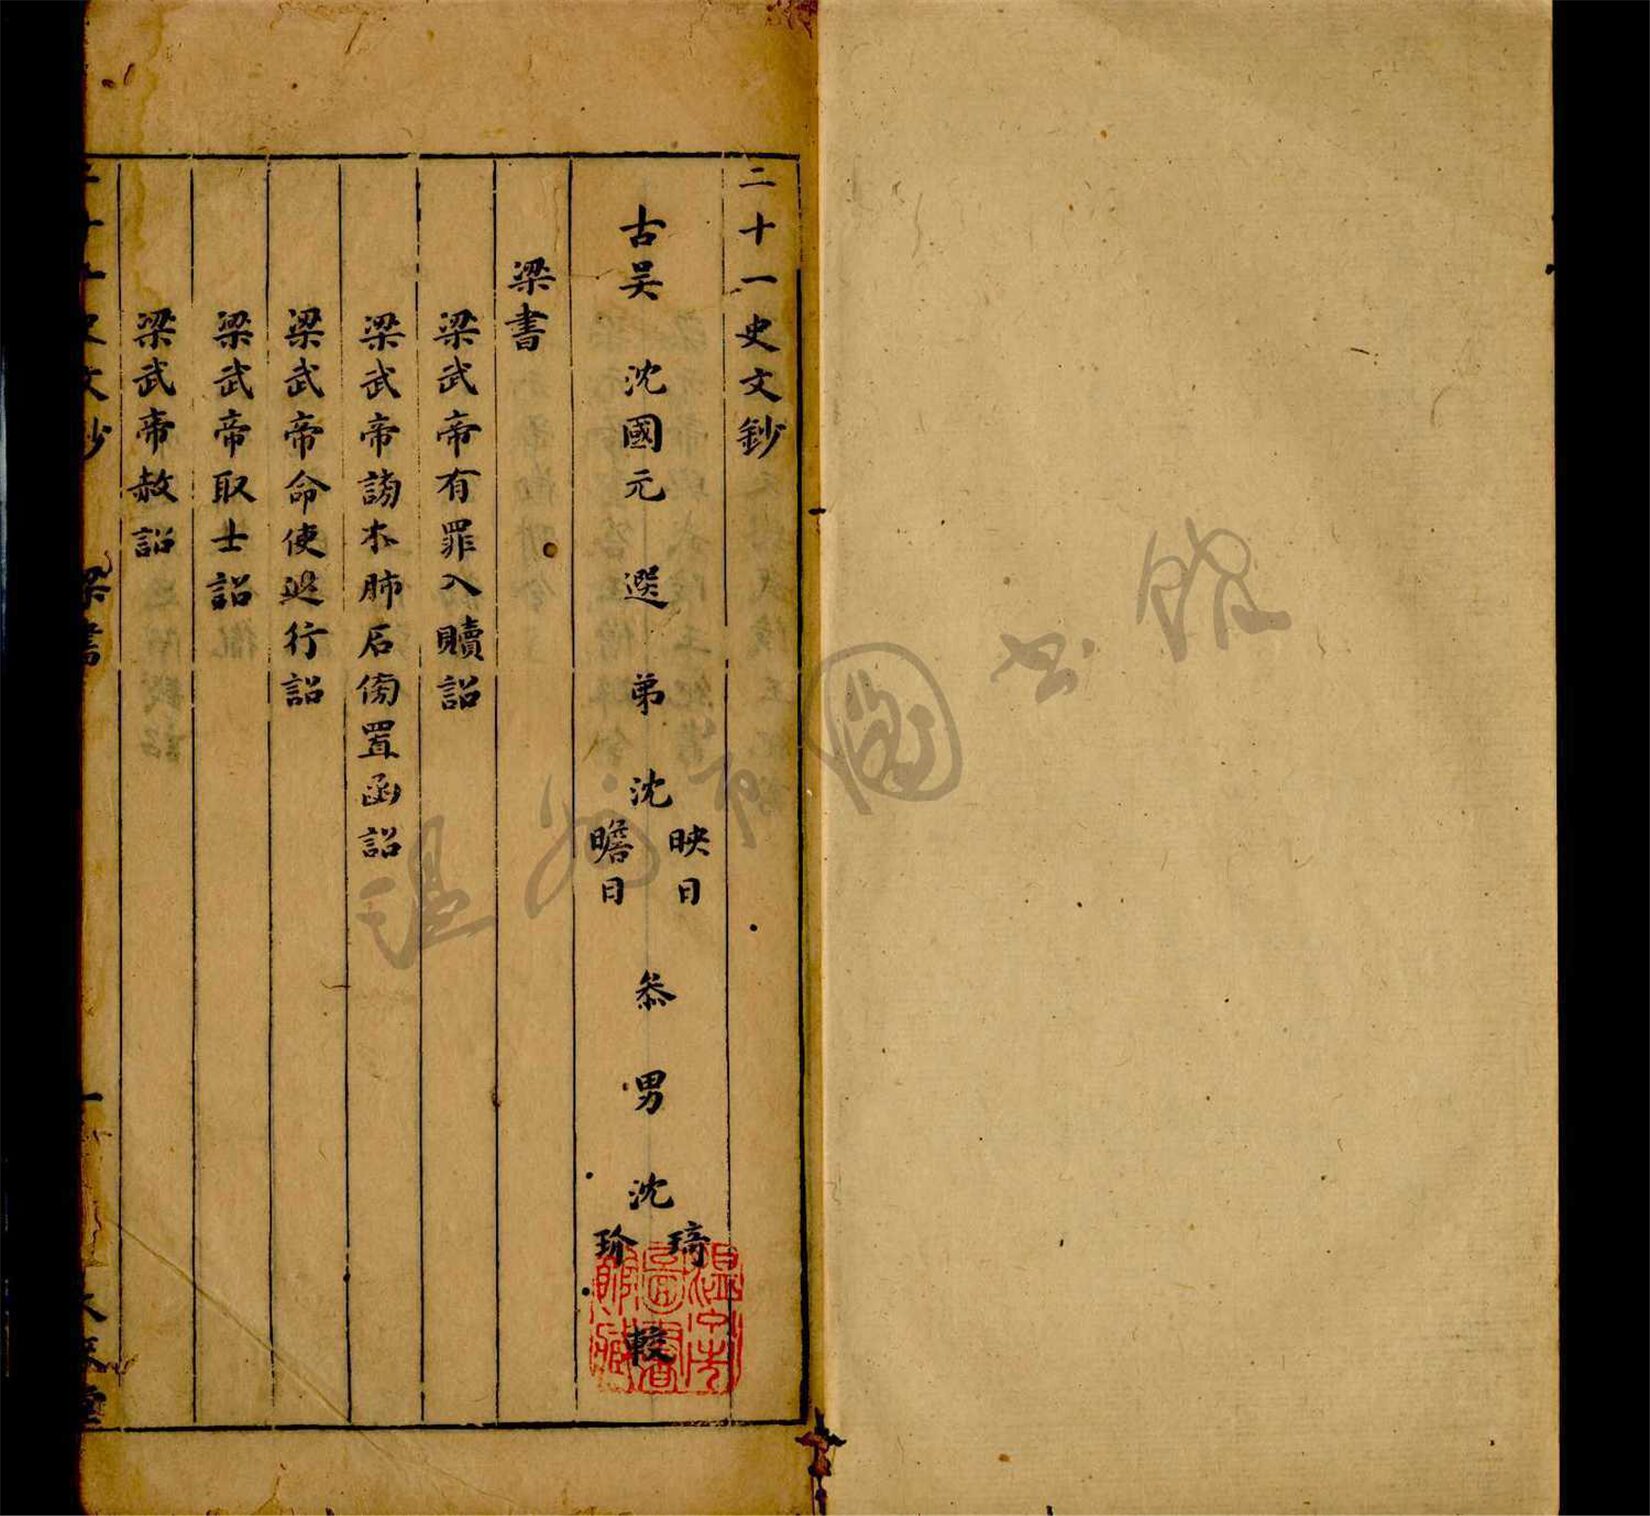 二十一史文鈔
古吴 沈國元 選 弟 沈 映日 瞻日 叅 男 沈 琦 玠 較
梁書
梁武帝有罪入贖詔
梁武帝謗木肺石傍置函詔
梁武帝命使巡行詔
梁武帝取士詔
梁武帝赦詔
二十一史文鈔 梁書 一 大來堂
温州市圖書館
温州市圖書館藏